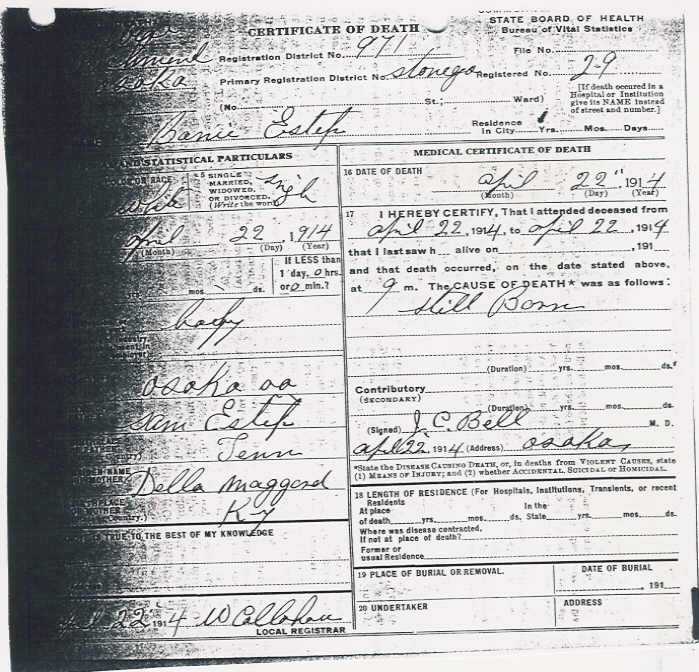 CERTIFICATE OF DEATH
STATE BOARD OF HEALTH
Bureau of Vital Statistics
Registration District No. 971
File No.
Primary Registration District No. Stonega Registered No. 29
(No. St.; Ward)
[If death occured in a Hospital or Institution give its NAME instead of street and number.]
Estep
Residence In City Yrs. Mos. Days
AND STATISTICAL PARTICULARS
MEDICAL CERTIFICATE OF DEATH
OR RACE
5 SINGLE MARRIED, WIDOWED, OR DIVORCED. (Write the word)
16 DATE OF DEATH
April 22" 1914
(Month) (Day) (Year)
April 22, 1914
(Month) (Day) (Year)
17 I HEREBY CERTIFY, That I attended deceased from
April 22, 1914, to April 22, 1914
that I last saw h alive on , 191
If LESS than 1 day, 0 hrs. or 0 min.?
mos. ds.
and that death occurred, on the date stated above,
at 9 m. The CAUSE OF DEATH* was as follows:
Still Born
baby
(Duration) yrs. mos. ds.
Osaka va
Contributory
(SECONDARY)
(Duration) yrs. mos. ds.
Sam Estep
Tenn
(Signed) J. C. Bell M. D.
April 22, 1914 (Address) Osaka,
*State the DISEASE CAUSING DEATH, or, in deaths from VIOLENT CAUSES, state
(1) MEANS OF INJURY; and (2) whether ACCIDENTAL, SUICIDAL or HOMICIDAL.
Della Maggerd
Ky
18 LENGTH OF RESIDENCE (For Hospitals, Institutions, Transients, or recent Residents
At place of death yrs. mos. ds. In the State yrs. mos. ds.
Where was disease contracted, If not at place of death?
Former or usual Residence
IS TRUE TO THE BEST OF MY KNOWLEDGE
19 PLACE OF BURIAL OR REMOVAL.
DATE OF BURIAL
, 191
22 1914 W Callahan
LOCAL REGISTRAR
20 UNDERTAKER
ADDRESS